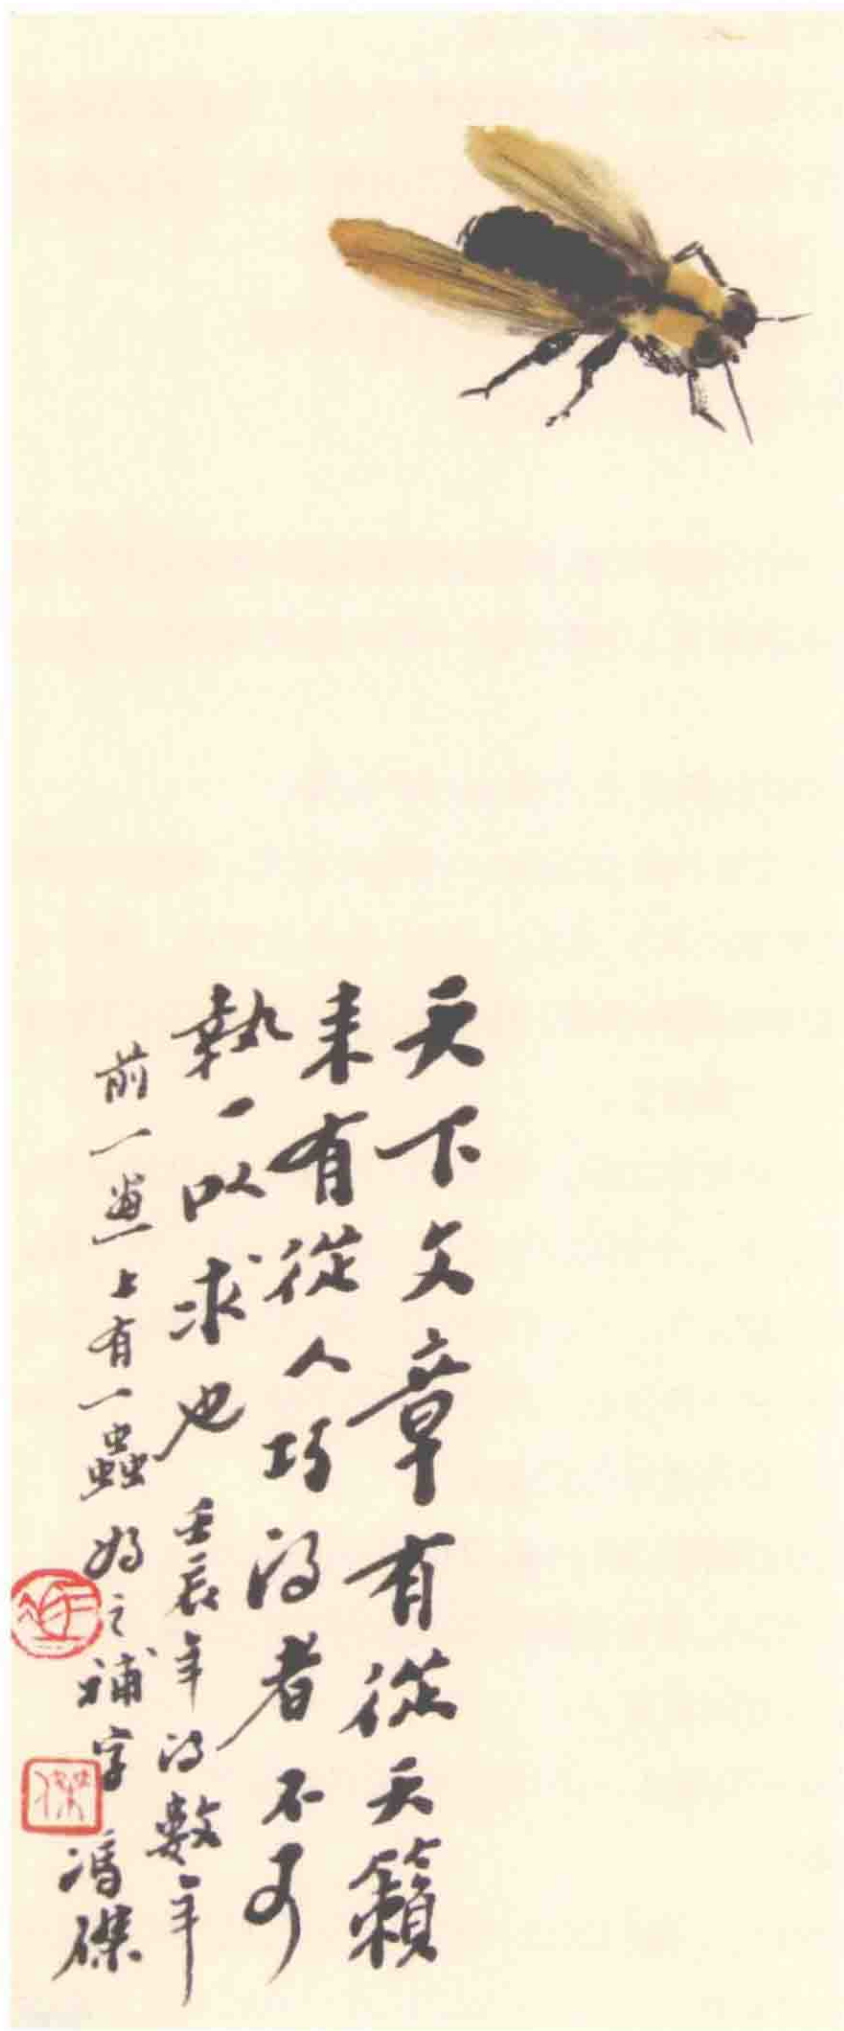 天下文章有從天籟
来有從人巧得者不可
執一以求也 壬辰年得數年
前一畫上有一蟲為之補字 馮傑
傑